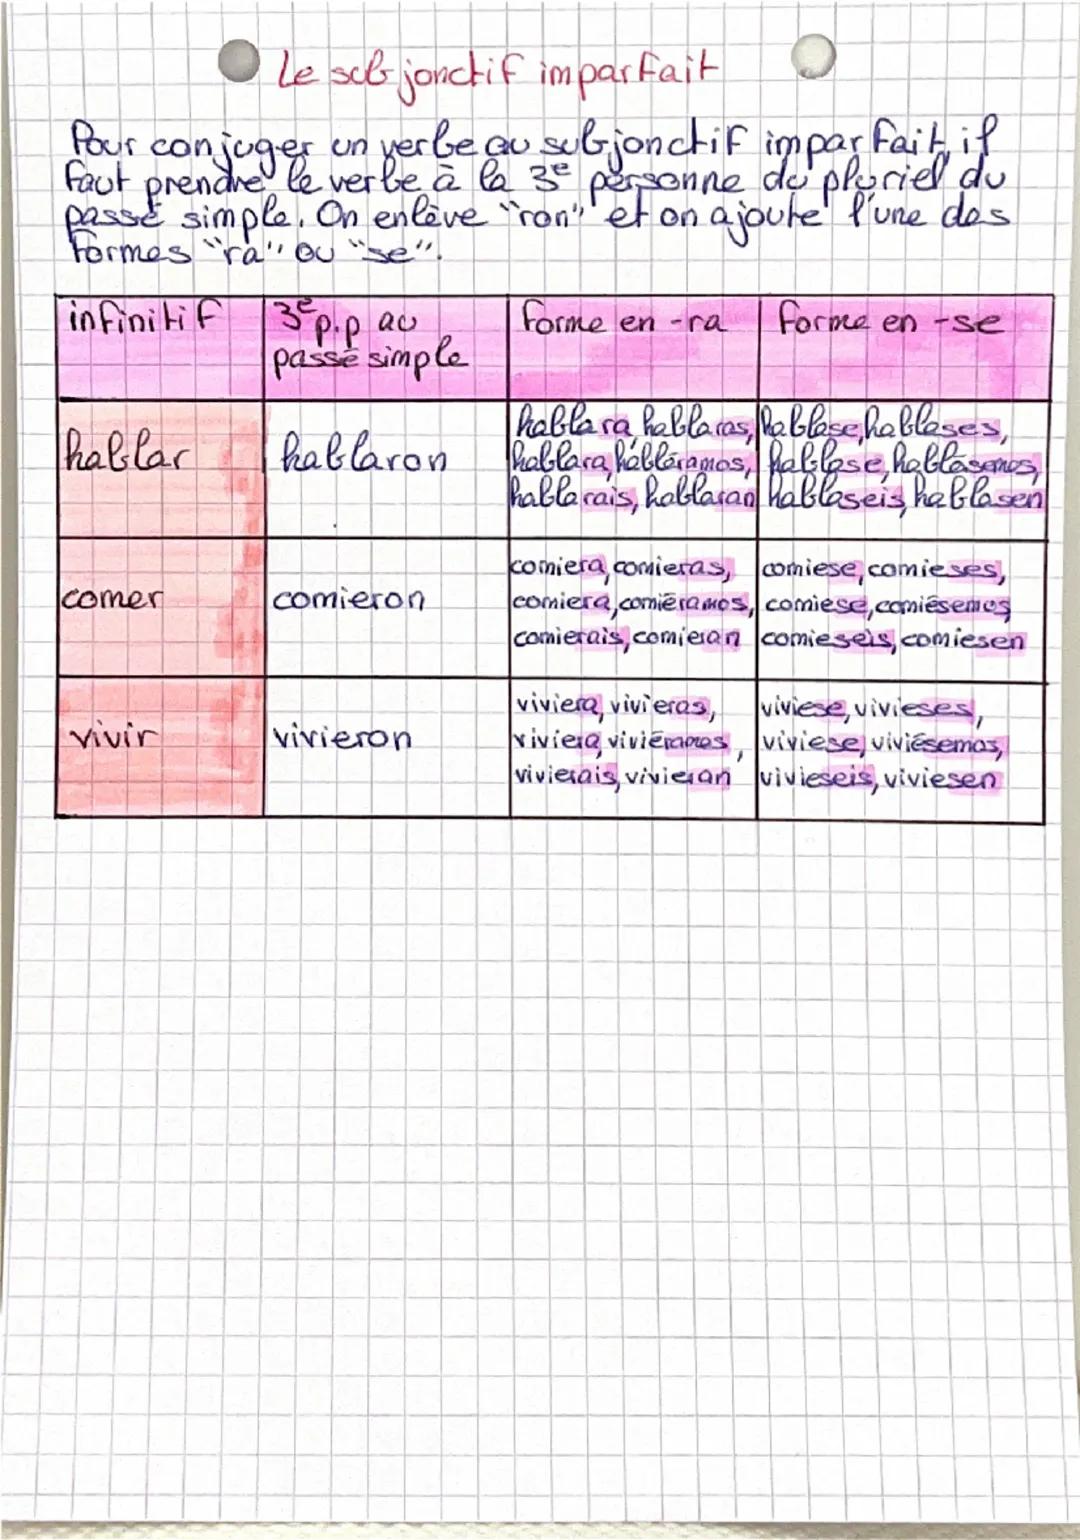 Le subjonctif imparfait
Pour conjuger un verbe au subjonctif imparfait, il
faut prendre le verbe à la 3e personne du pluriel du
passé simple. On enlève "ron" et on ajoute l'une des
formes "ra" ou "se".
infinitif 3e p.p au passé simple forme en -ra forme en -se
hablar hablaron
hablara, hablaras,
hablara, habláramos,
hablarais, hablaran
hablase, hablases,
hablase, hablásemos,
hablaseis, hablasen
comer comieron
comiera, comieras,
comiera, comiéramos,
comierais, comieran
comiese, comieses,
comiese, comiésemos
comieseis, comiesen
vivir vivieron
viviera, vivieras,
viviera, viviéramos,
vivierais, vivieran
viviese, vivieses,
viviese, viviésemos,
vivieseis, viviesen